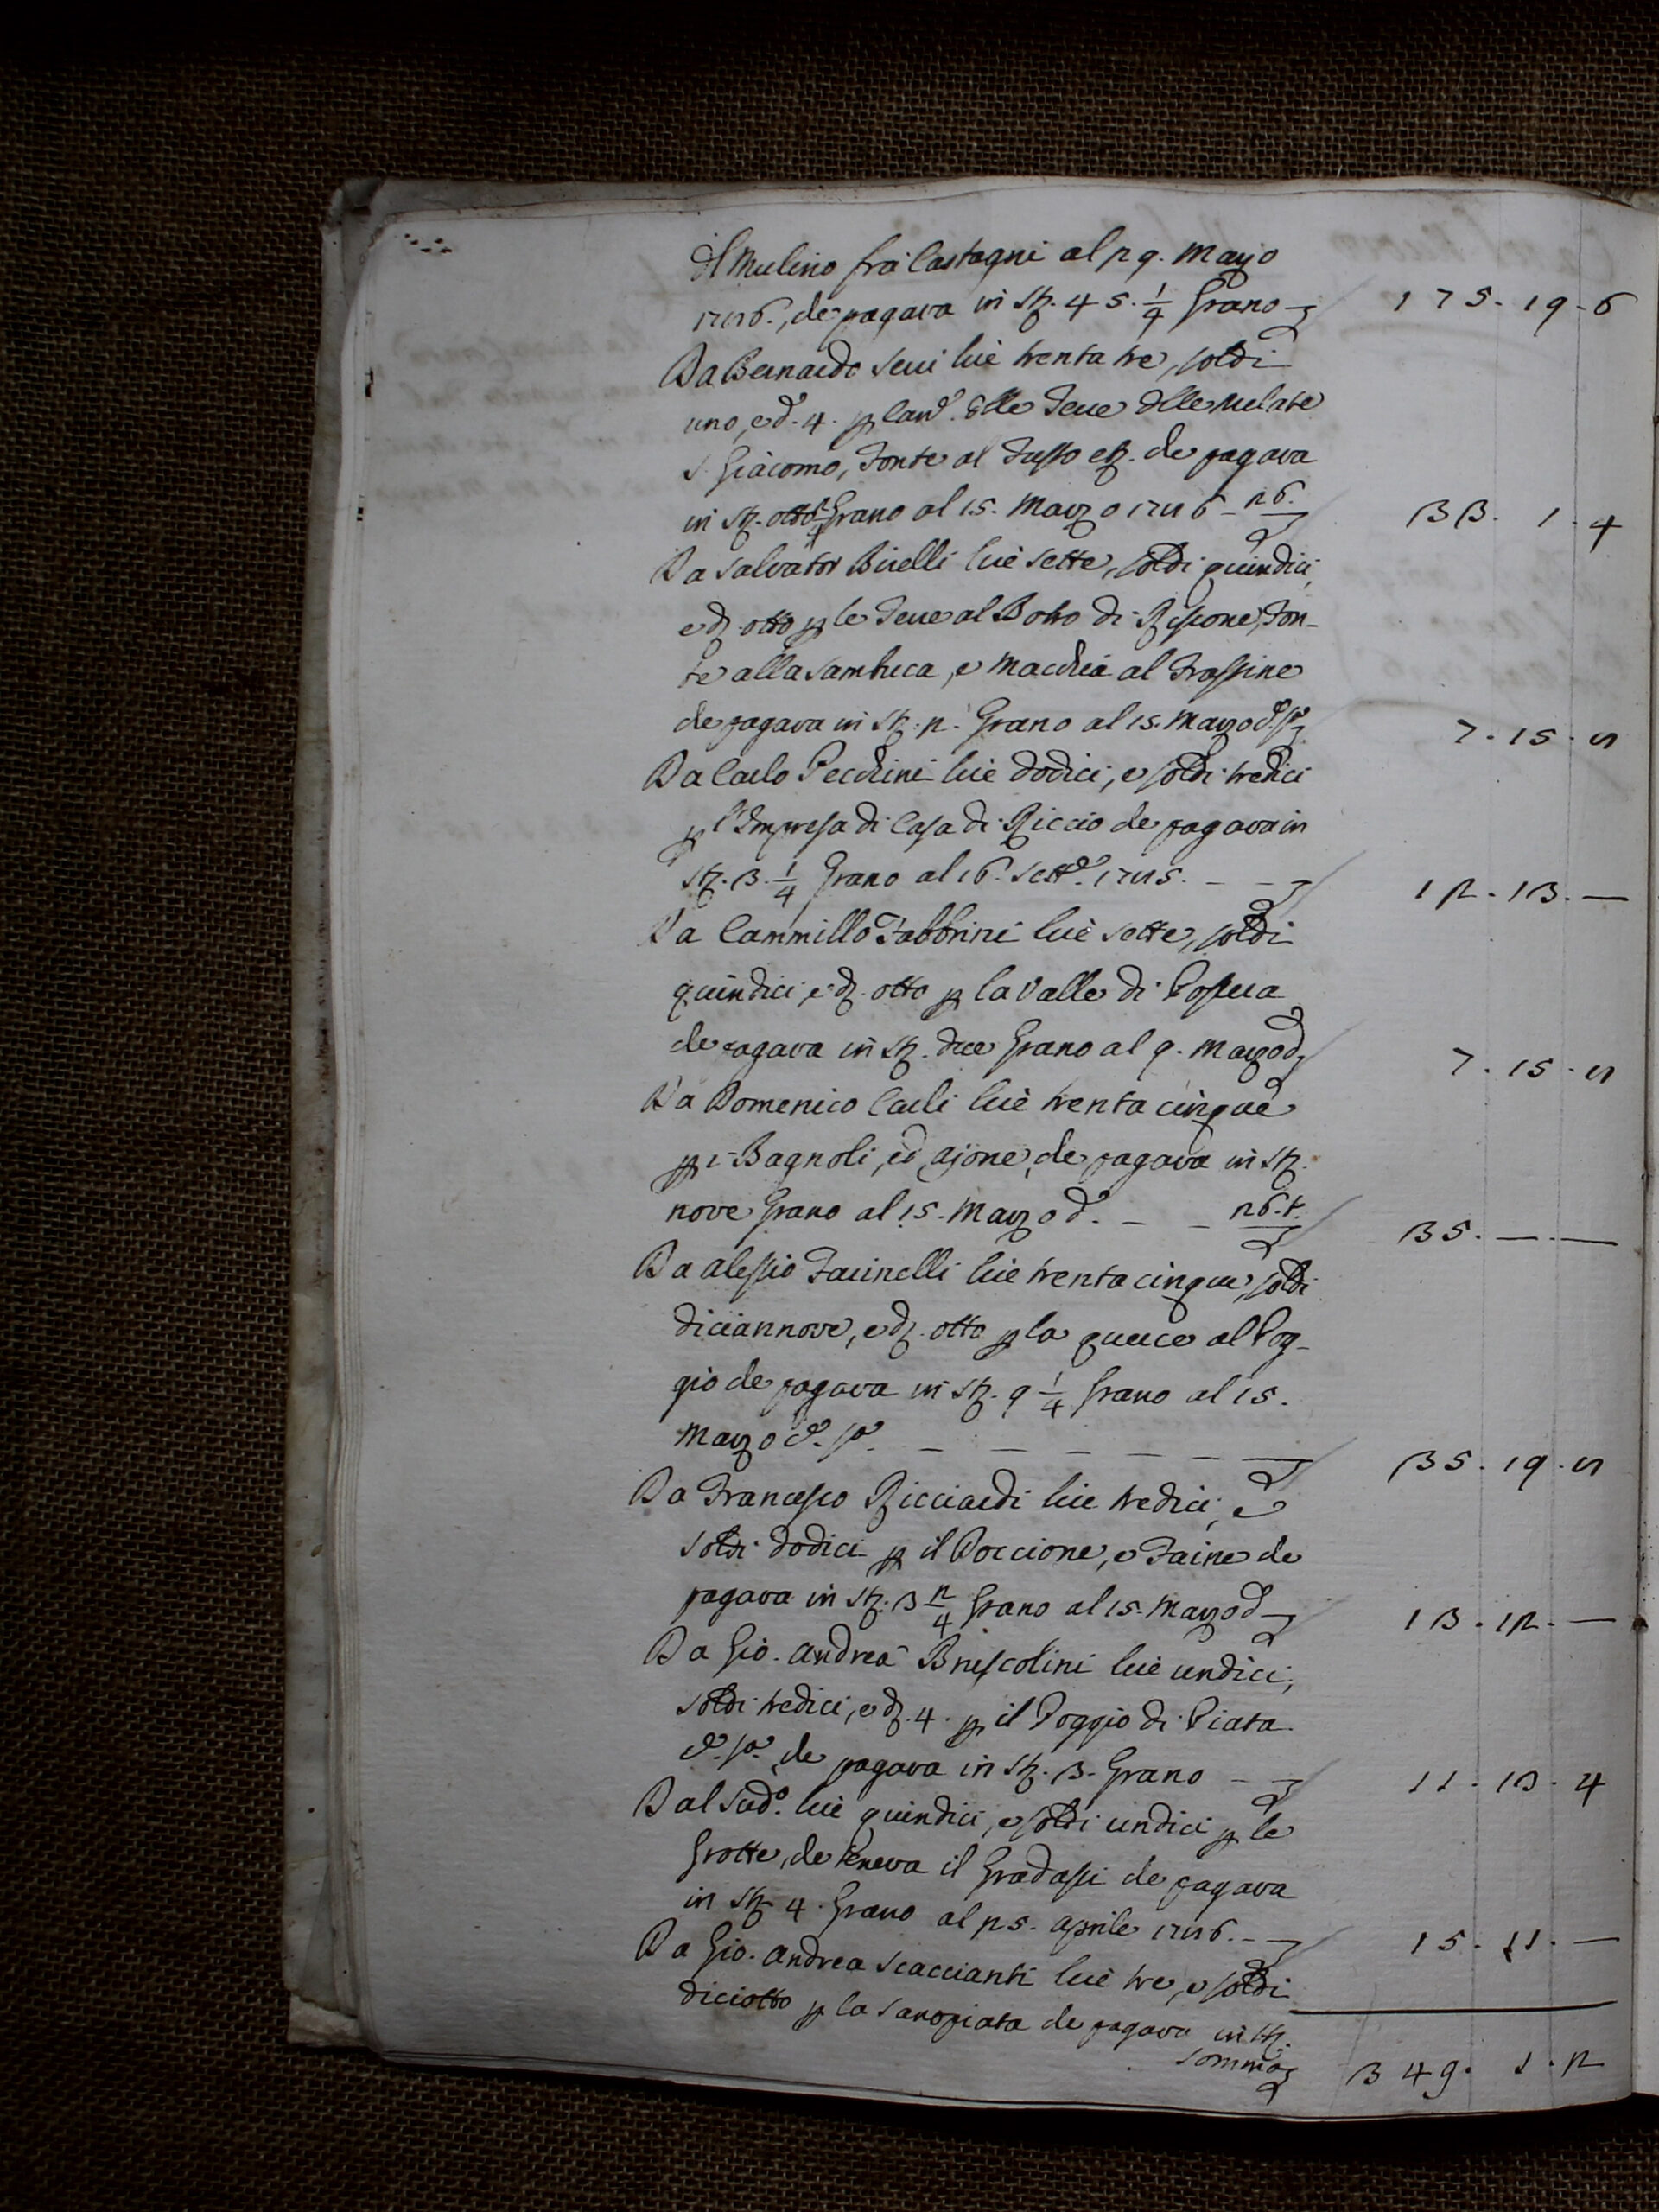 il Mulino frà Castagni al 29. Marzo
1786., che pagava in St. 45. 1/4 Grano 175. 19. 6
Da Bernardo Seri lire trenta tre, soldi
uno, e d. 4. p land. delle Terre delle Melate
S. Giacomo, Fonte al Tusso et. che pagava
in St. otto 1/2 Grano al 15. Marzo 1786 - 26. 33. 1. 4
Da Salvator Birelli lire sette, soldi quindici,
e d. otto p le Terre al Botro di Riscone, Fon-
te alla Sambuca, e Macchia al Frassine
che pagava in St. 2. Grano al 15. Marzo d. so 7. 15. 8
Da Carlo Pecchini lire dodici, e soldi tredici
p l'Impresa di Casa di Riccio che pagava in
St. 3. 1/4 Grano al 16. Sette. 1785. - - 12. 13. —
Da Cammillo Fabbrini lire sette, soldi
quindici, e d. otto p la Valle di
che pagava in St. due Grano al 9. Marzo d. 7. 15. 8
Da Domenico Carli lire trenta cinque
p i Bagnoli, ed Ajone, che pagava in St.
nove Grano al 15. Marzo d. - - 26. t. 35. — . —
Da Alessio Farinelli lire trenta cinque, soldi
diciannove, e d. otto p la querce al Pog-
gio che pagava in St. 9 1/4 Grano al 15.
Marzo d. so. - - - - - - 35. 19. 8
Da Francesco Ricciardi lire tredici, e
soldi dodici p il Doccione, e Faine che
pagava in St. 3 2/4 Grano al 15. Marzo d. 13. 12. —
Da Gio. Andrea Bruscolini lire undici,
soldi tredici, e d. 4. p il Poggio di Piata
d. so. che pagava in St. 3. Grano - - 11. 13. 4
Dal Sud.o lire quindici, e soldi undici p le
Grotte, che teneva il Gradassi che pagava
in St. 4. Grano al 25. Aprile 1786. - - 15. 11. —
Da Gio. Andrea Scaccianti lire tre, e soldi
diciotto p la che pagava in St.
Somma 349. 1. 2